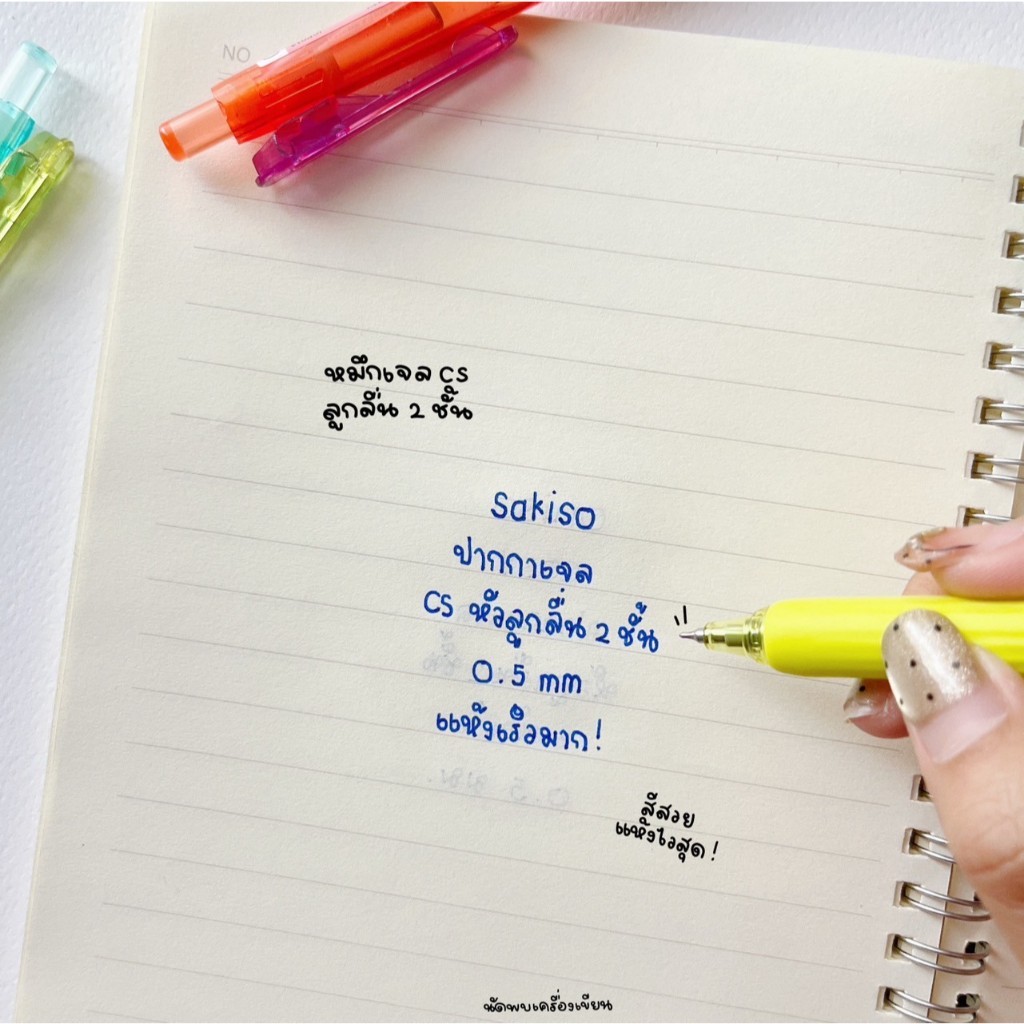 NO
หมึกเจล CS
ลูกลื่น 2 ชั้น
Sakiso
ปากกาเจล
CS หัวลูกลื่น 2 ชั้น
0.5 mm
แห้งเร็วมาก!
สีสวย
แห้งไวสุด!
นัดพบเครื่องเขียน